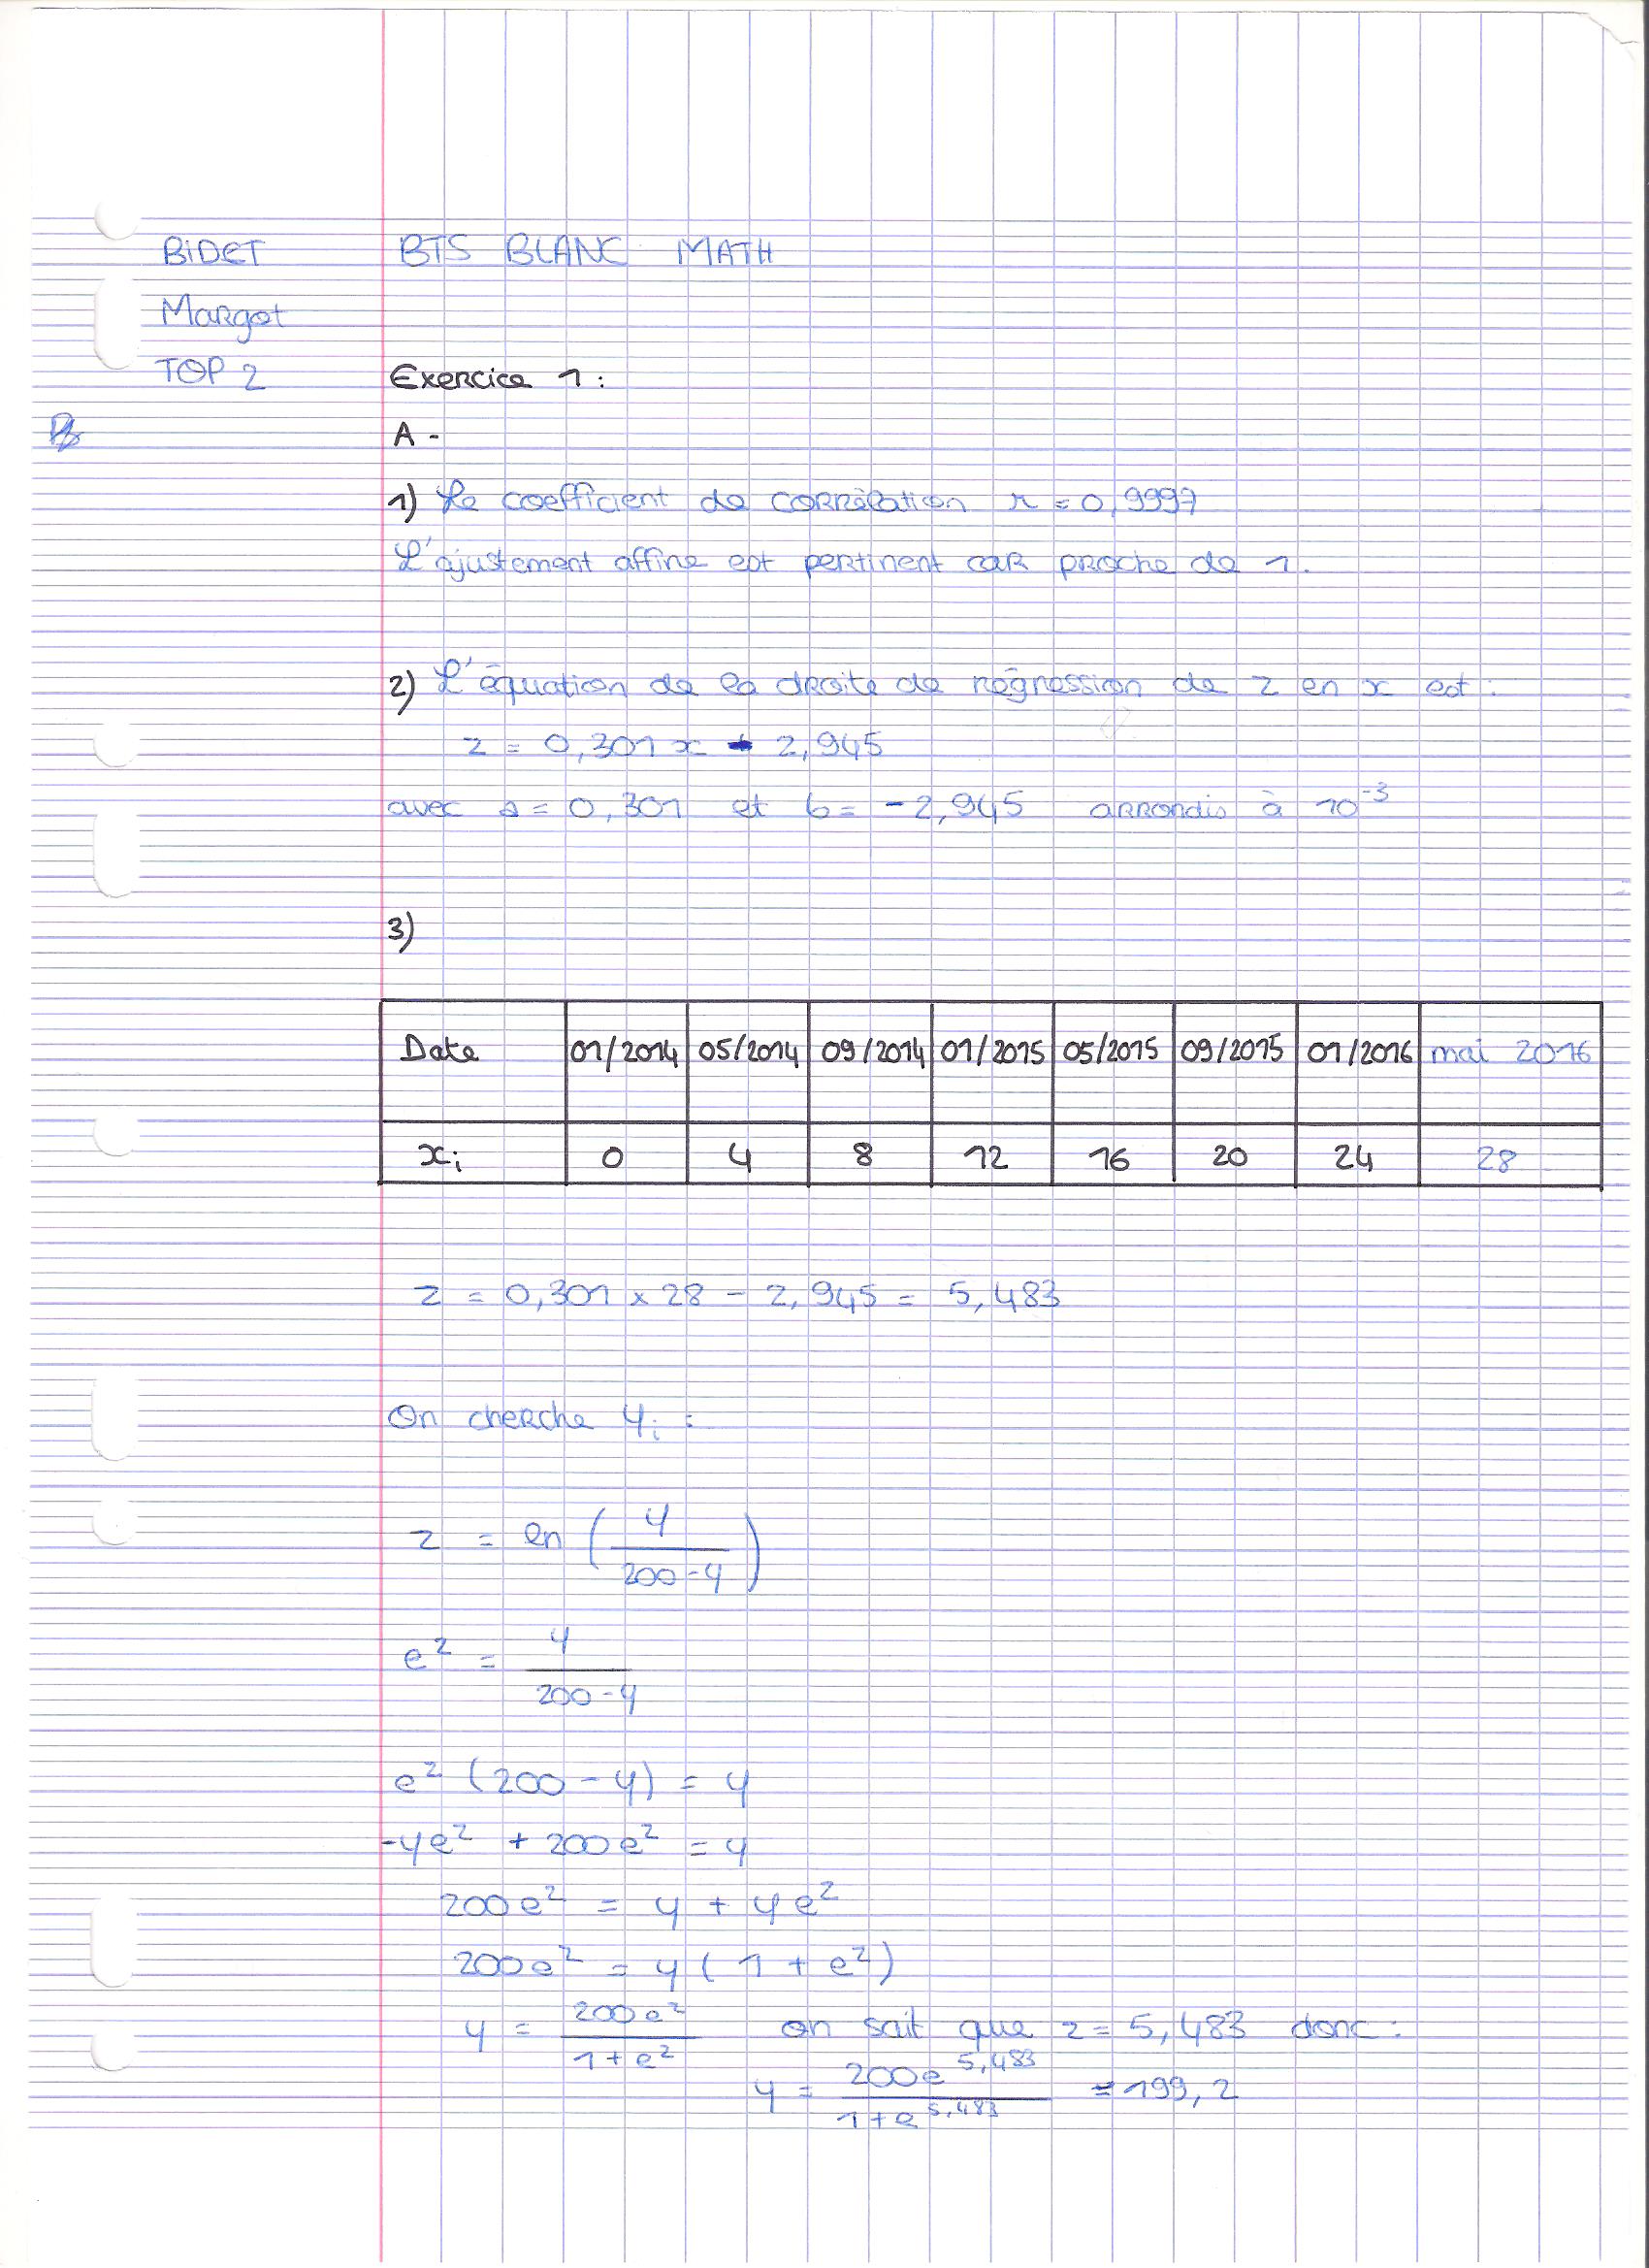 BiDET BTS BLANC MATH
Margot
TOP 2 Exercice 1 :
A -
1) Le coefficient de corrélation r = 0,9997
L'ajustement affine est pertinent car proche de 1.
2) L'équation de la droite de régression de z en x est :
z = 0,301 x - 2,945
avec a = 0,301 et b = -2,945 arrondis à 10⁻³
3)
Date 01/2014 05/2014 09/2014 01/2015 05/2015 09/2015 01/2016 mai 2016
xᵢ 0 4 8 12 16 20 24 28
z = 0,301 x 28 - 2,945 = 5,483
On cherche yᵢ :
z = ln (y / (200-y))
e^z = y / (200-y)
e^z (200 - y) = y
-ye^z + 200e^z = y
200e^z = y + ye^z
200e^z = y (1 + e^z)
y = 200e^z / (1+e^z) on sait que z = 5,483 donc :
y = 200e^5,483 / (1+e^5,483) = 199,2